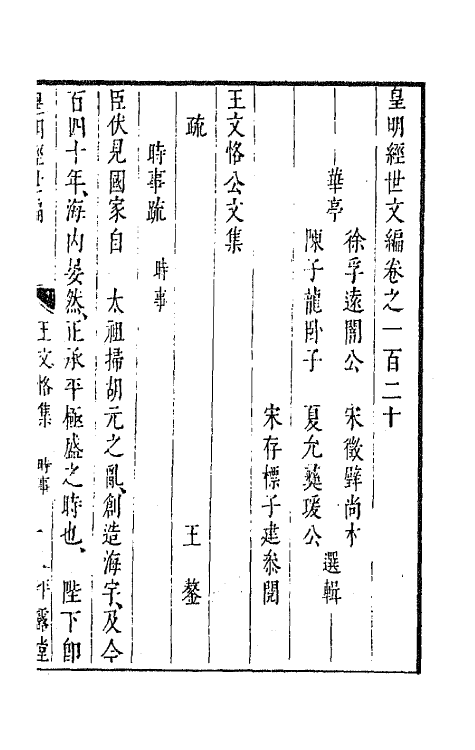 皇明經世文編卷之一百二十
華亭
徐孚遠闇公
宋徵璧尚木
陳子龍臥子
夏允彝瑗公
選輯
宋存標子建叅閱
王文恪公文集
疏
王鏊
時事疏
時事
臣伏見國家自　太祖掃胡元之亂、創造海宇、及今
百四十年、海內晏然、正承平極盛之時也、　陛下卽
皇明經世編
王文恪集
時事
一
平露堂